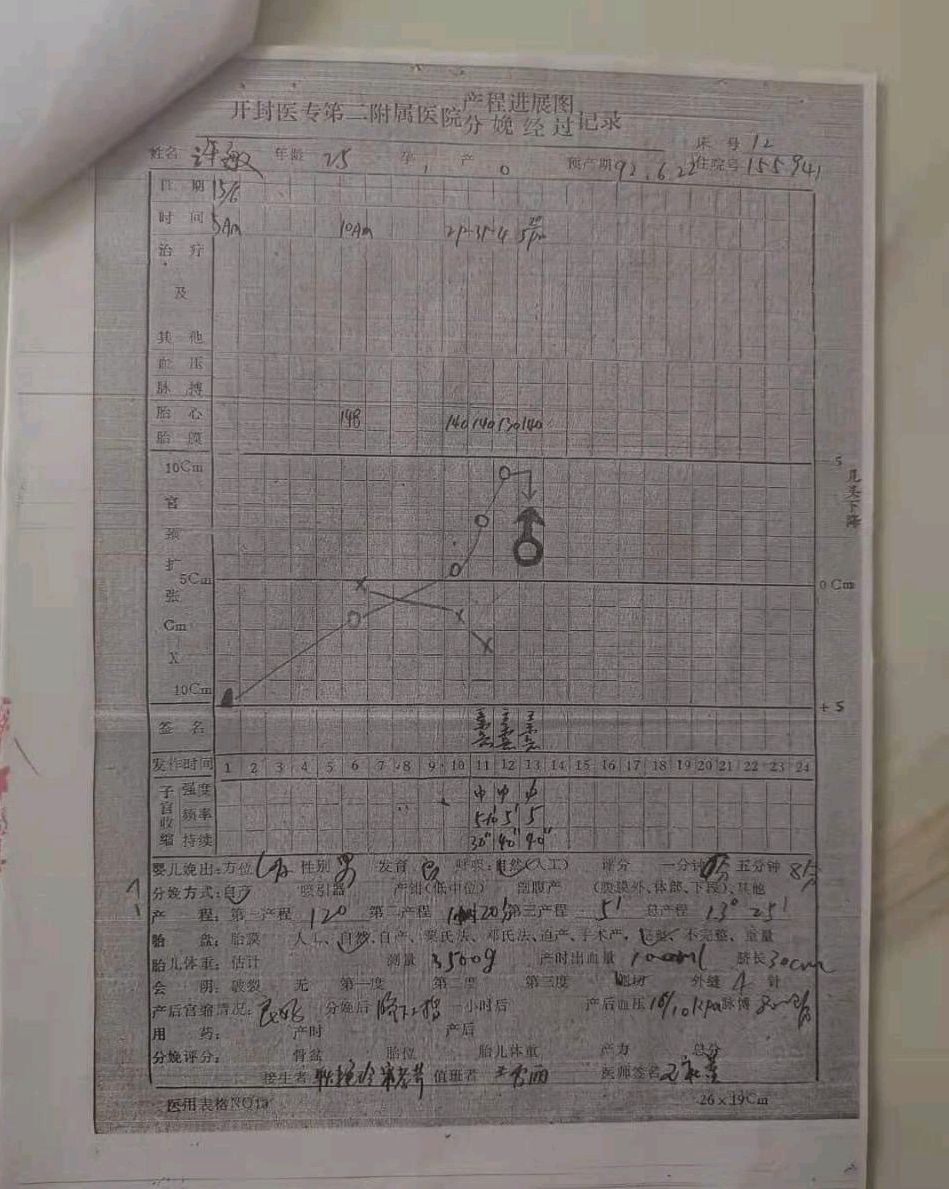 产程进展图
开封医专第二附属医院分娩经过记录
床号 12
姓名 许敏 年龄 25 孕 1 产 0 预产期 92.6.22 住院号 155941
日期 15/6
时间 5Am 10Am 2p 3p 4 5pm
治疗
及
其他
血压
脉搏
胎心 148 140 140 130 140
胎膜
10Cm -5
宫颈扩张
见头下降
5Cm 0Cm
Cm
X
10Cm +5
签名
发作时间 1 2 3 4 5 6 7 8 9 10 11 12 13 14 15 16 17 18 19 20 21 22 23 24
子宫收缩
强度 中 中 中
频率 5' 5
持续 30" 40" 40"
婴儿娩出：方位 性别 男 发育 呼吸：自然(人工) 评分 一分钟 五分钟 8分
分娩方式：自产 吸引器 产钳(低中位) 剖腹产 (腹膜外、体部、下段)、其他
产程：第一产程 12° 第二产程 1时20分 第三产程 5' 总产程 13° 25'
胎盘：胎膜 人工、自然、自产、荀氏法、邓氏法、迫产、手术产，完整、不完整、重量
胎儿体重：估计 测量 3500g 产时出血量 100ml 脐长 30cm
会阴：破裂 无 第一度 第二度 第三度 侧切 外缝 4 针
产后宫缩情况：良好 分娩后 脐下二指 一小时后 产后血压 16/10kpa 脉搏
用药：产时 产后
分娩评分：骨盆 胎位 胎儿体重 产力 总分
接生者 值班者 医师签名
医用表格NO13 26×19Cm